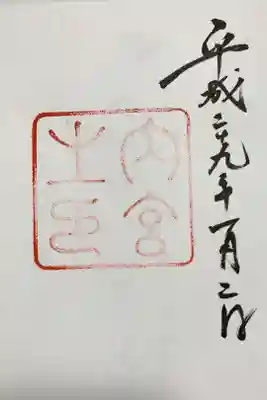 平成二十九年一月二日
内宮
之印